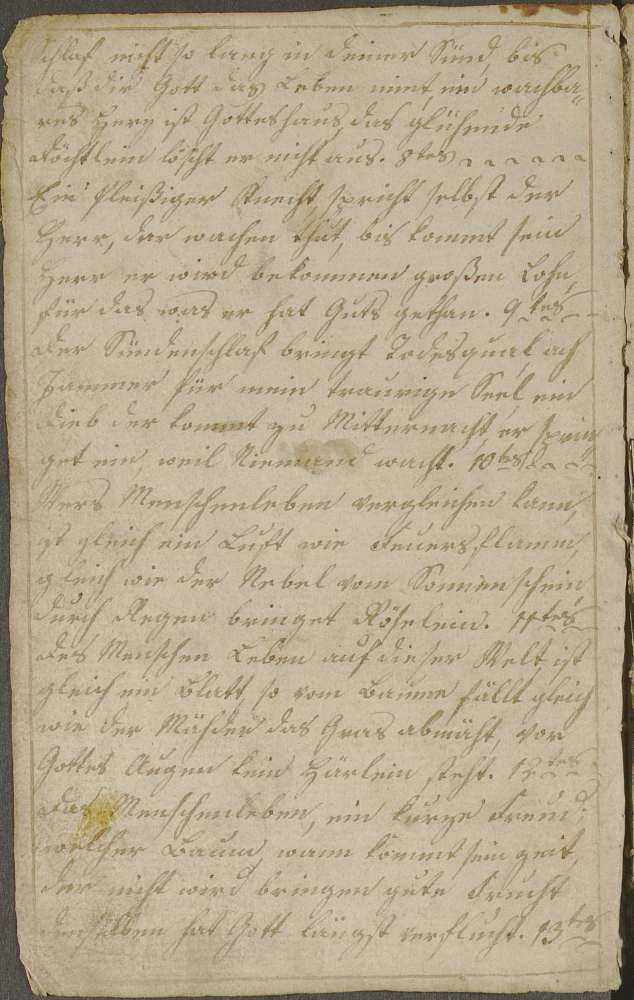 Schlaf nicht so lang in deiner Sünd, bis
daß dir Gott das Leben nimt, ein wachba„
res Herz ist Gotteshaus, das glühende
Döchtlein löscht er nicht aus. 8tes
Ein fleißiger Knecht, spricht selbst der
Herr, der wachen thut, bis kommt sein
Herr er wird bekommen großen Lohn,
für das was er hat Guts gethan. 9tes
Der Sündenschlaf bringt Todesqual, ach
Jammer für mein traurige Seel, ein
Dieb der kommt zu Mitternacht, er sprin„
get ein, weil Niemand wacht. 10tes
Wers Menschenleben vergleichen kann,
ist gleich ein Luft wie Feuersflamm,
gleich wie der Nebel vom Sonnenschein
durch Regen bringet Röselein. 11tes
Des Menschen Leben auf dieser Welt, ist
gleich ein Blatt, so vom Baume fällt, gleich
wie der Mähder das Gras abmäht, vor
Gottes Augen kein Härlein steht. 12tes
Das Menschenleben, ein kurze Freud;
welcher Baum, wann kommt sein Zeit,
der nicht wird bringen gute Frucht
denselben hat Gott längst verflucht. 13tes